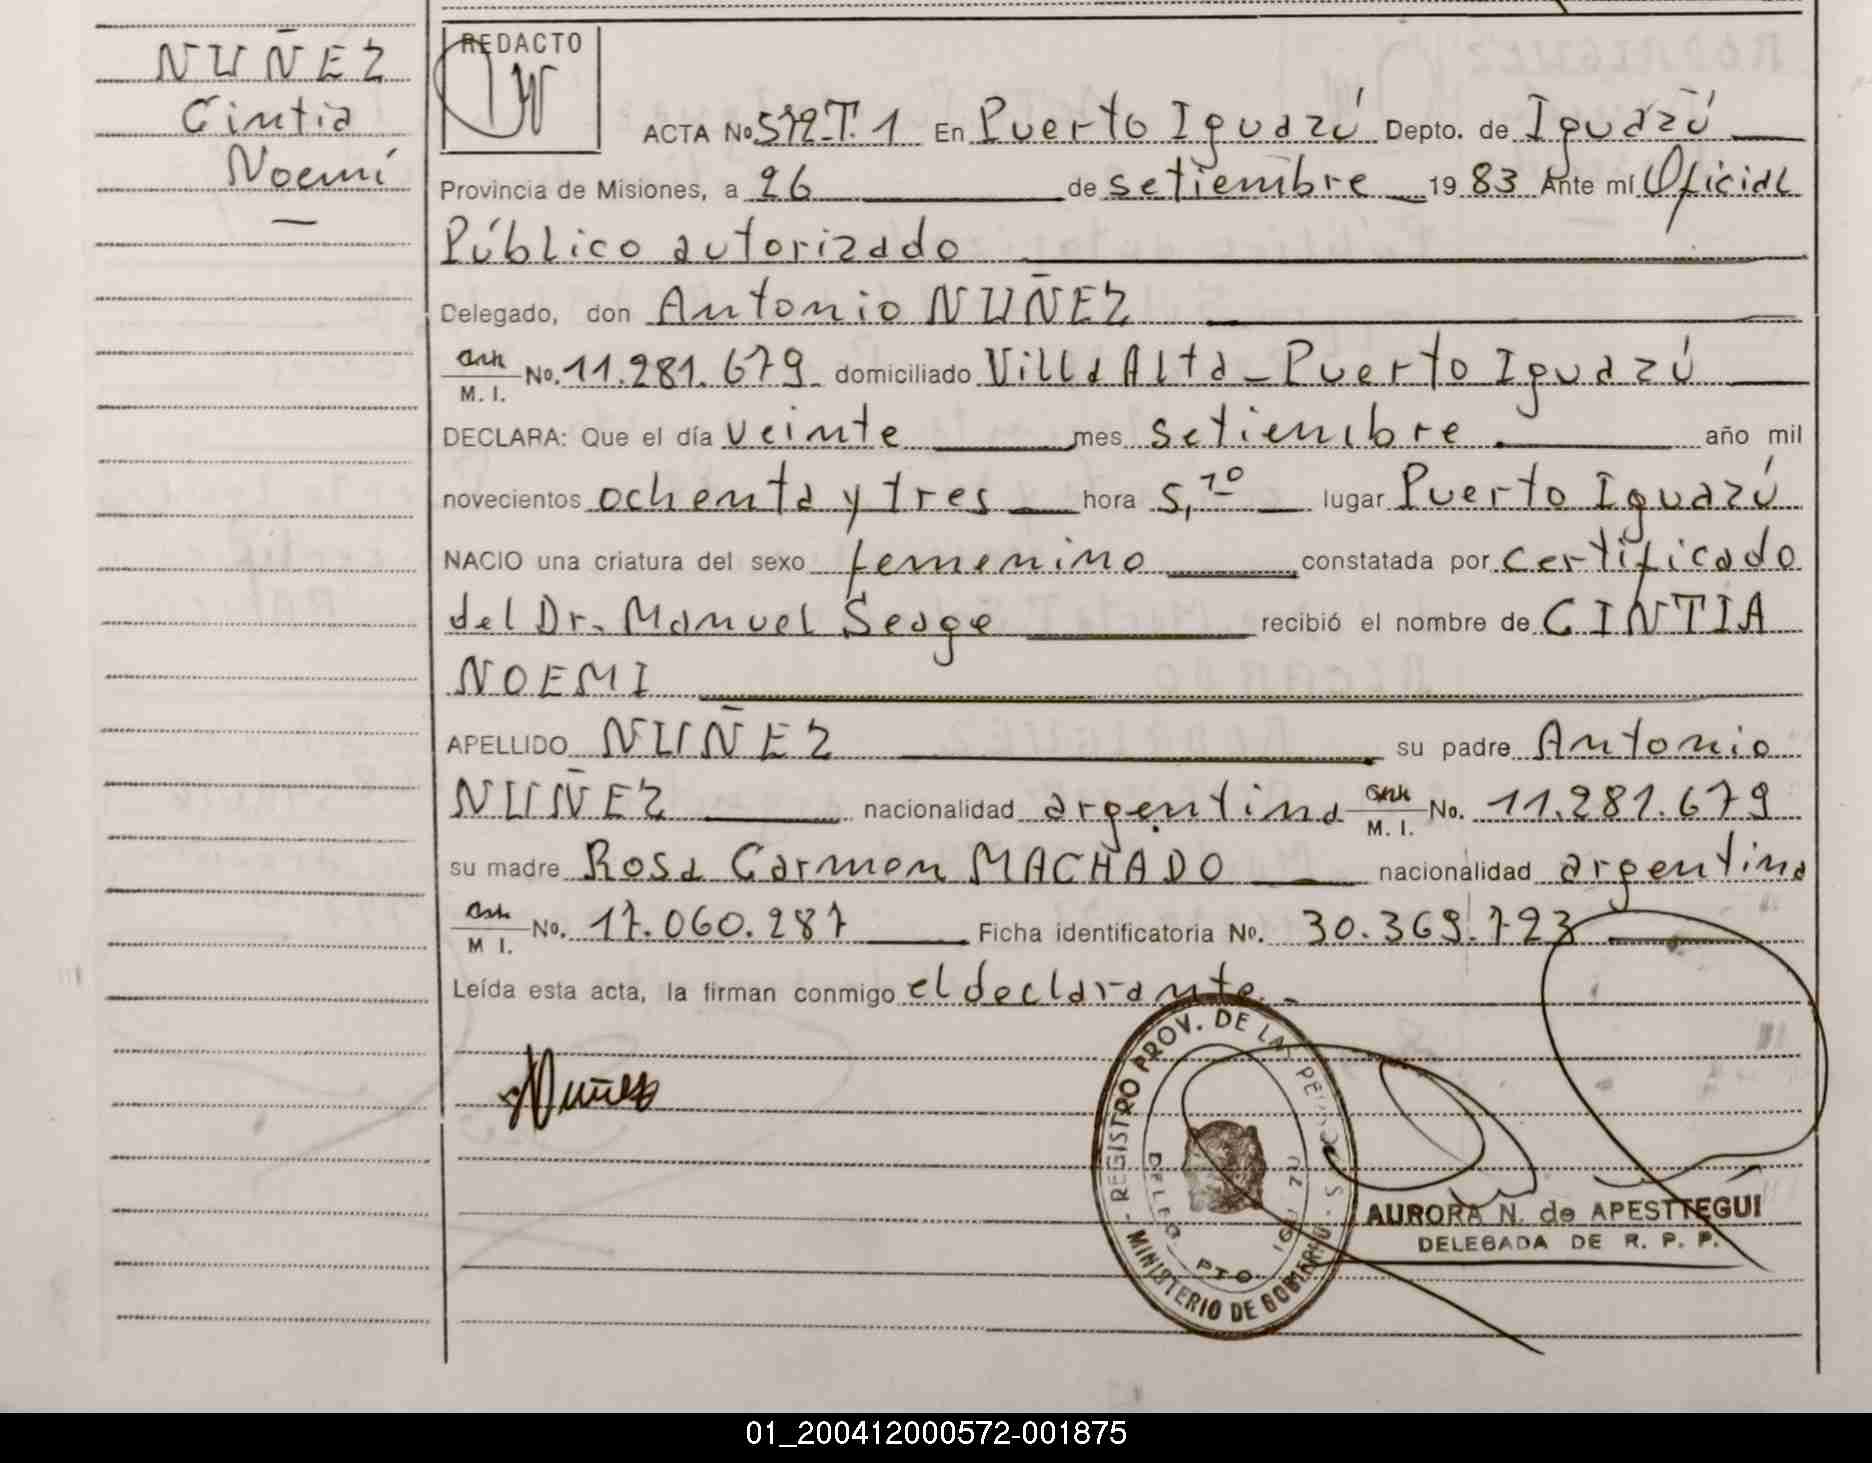 NUÑEZ
Cintia
Noemí
REDACTO
ACTA No 572 T. 1 En Puerto Iguazú Depto. de Iguazú
Provincia de Misiones, a 26 de setiembre 19 83 Ante mí Oficial
Público autorizado
Delegado, don Antonio NUÑEZ
M. I. No. 11.281.679 domiciliado Villa Alta - Puerto Iguazú
DECLARA: Que el día veinte mes setiembre año mil
novecientos ochenta y tres hora 5,10 lugar Puerto Iguazú
NACIO una criatura del sexo femenino constatada por certificado
del Dr. Manuel Seage recibió el nombre de CINTIA
NOEMI
APELLIDO NUÑEZ su padre Antonio
NUÑEZ nacionalidad argentina M. I. No. 11.281.679
su madre Rosa Carmen MACHADO nacionalidad argentina
M I. No. 17.060.287 Ficha identificatoria No. 30.369.723
Leída esta acta, la firman conmigo el declarante.-
Nuñez
REGISTRO PROV. DE LAS PERSONAS
MINISTERIO DE GOBIERNO
DELEG. PTO. IGUAZU
AURORA N. de APESTTEGUI
DELEGADA DE R. P. P.
01_200412000572-001875